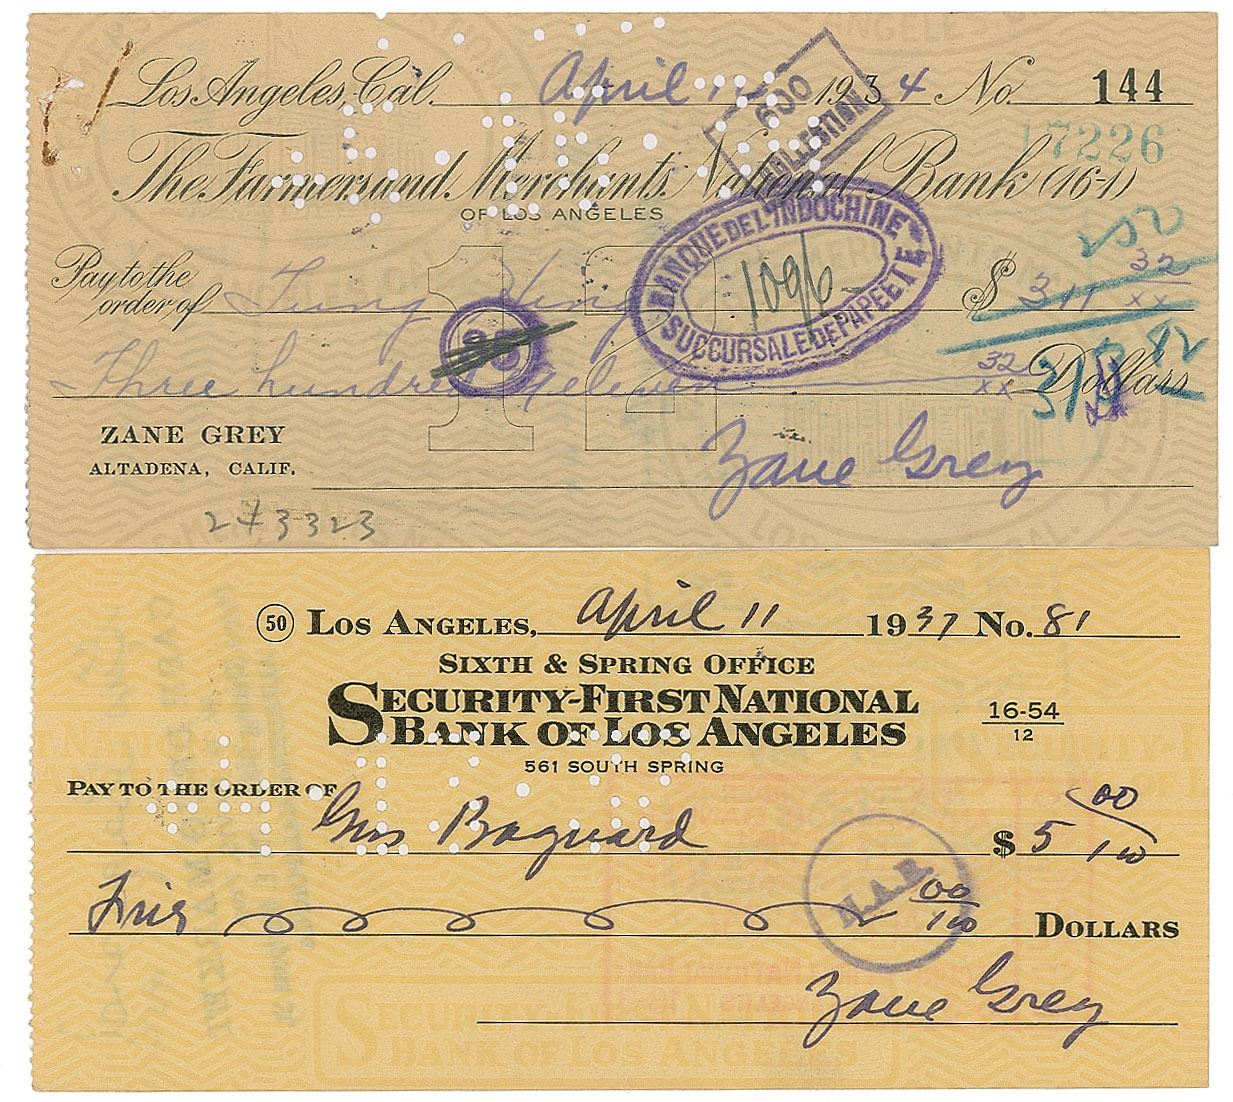 Los Angeles, Cal. April 1934 No. 144
600
COLLECTION
17226
The Farmers and Merchants National Bank (16-1)
OF LOS ANGELES
BANQUE DE L'INDOCHINE
1096
SUCCURSALE DE PAPEETE
Pay to the order of Tung Hing $ 311 32/xx
12
Three hundred & eleven 32/xx Dollars
ZANE GREY
ALTADENA, CALIF.
Zane Grey
273323
50 LOS ANGELES, April 11 1937 NO. 81
SIXTH & SPRING OFFICE
SECURITY-FIRST NATIONAL
BANK OF LOS ANGELES
16-54
12
561 SOUTH SPRING
PAY TO THE ORDER OF Gus Bagnard $ 5 00/100
Five 00/100 DOLLARS
N.A.R.
Zane Grey
SECURITY-FIRST NATIONAL
BANK OF LOS ANGELES